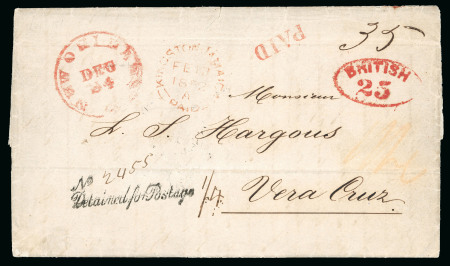 NEW ORLEANS
DEC
24
KINGSTON JAMAICA
FE
PAID
PAID
35
BRITISH
25
Monsieur
L. S. Hargous
Vera Cruz
No 2455
Detained for Postage
1/4